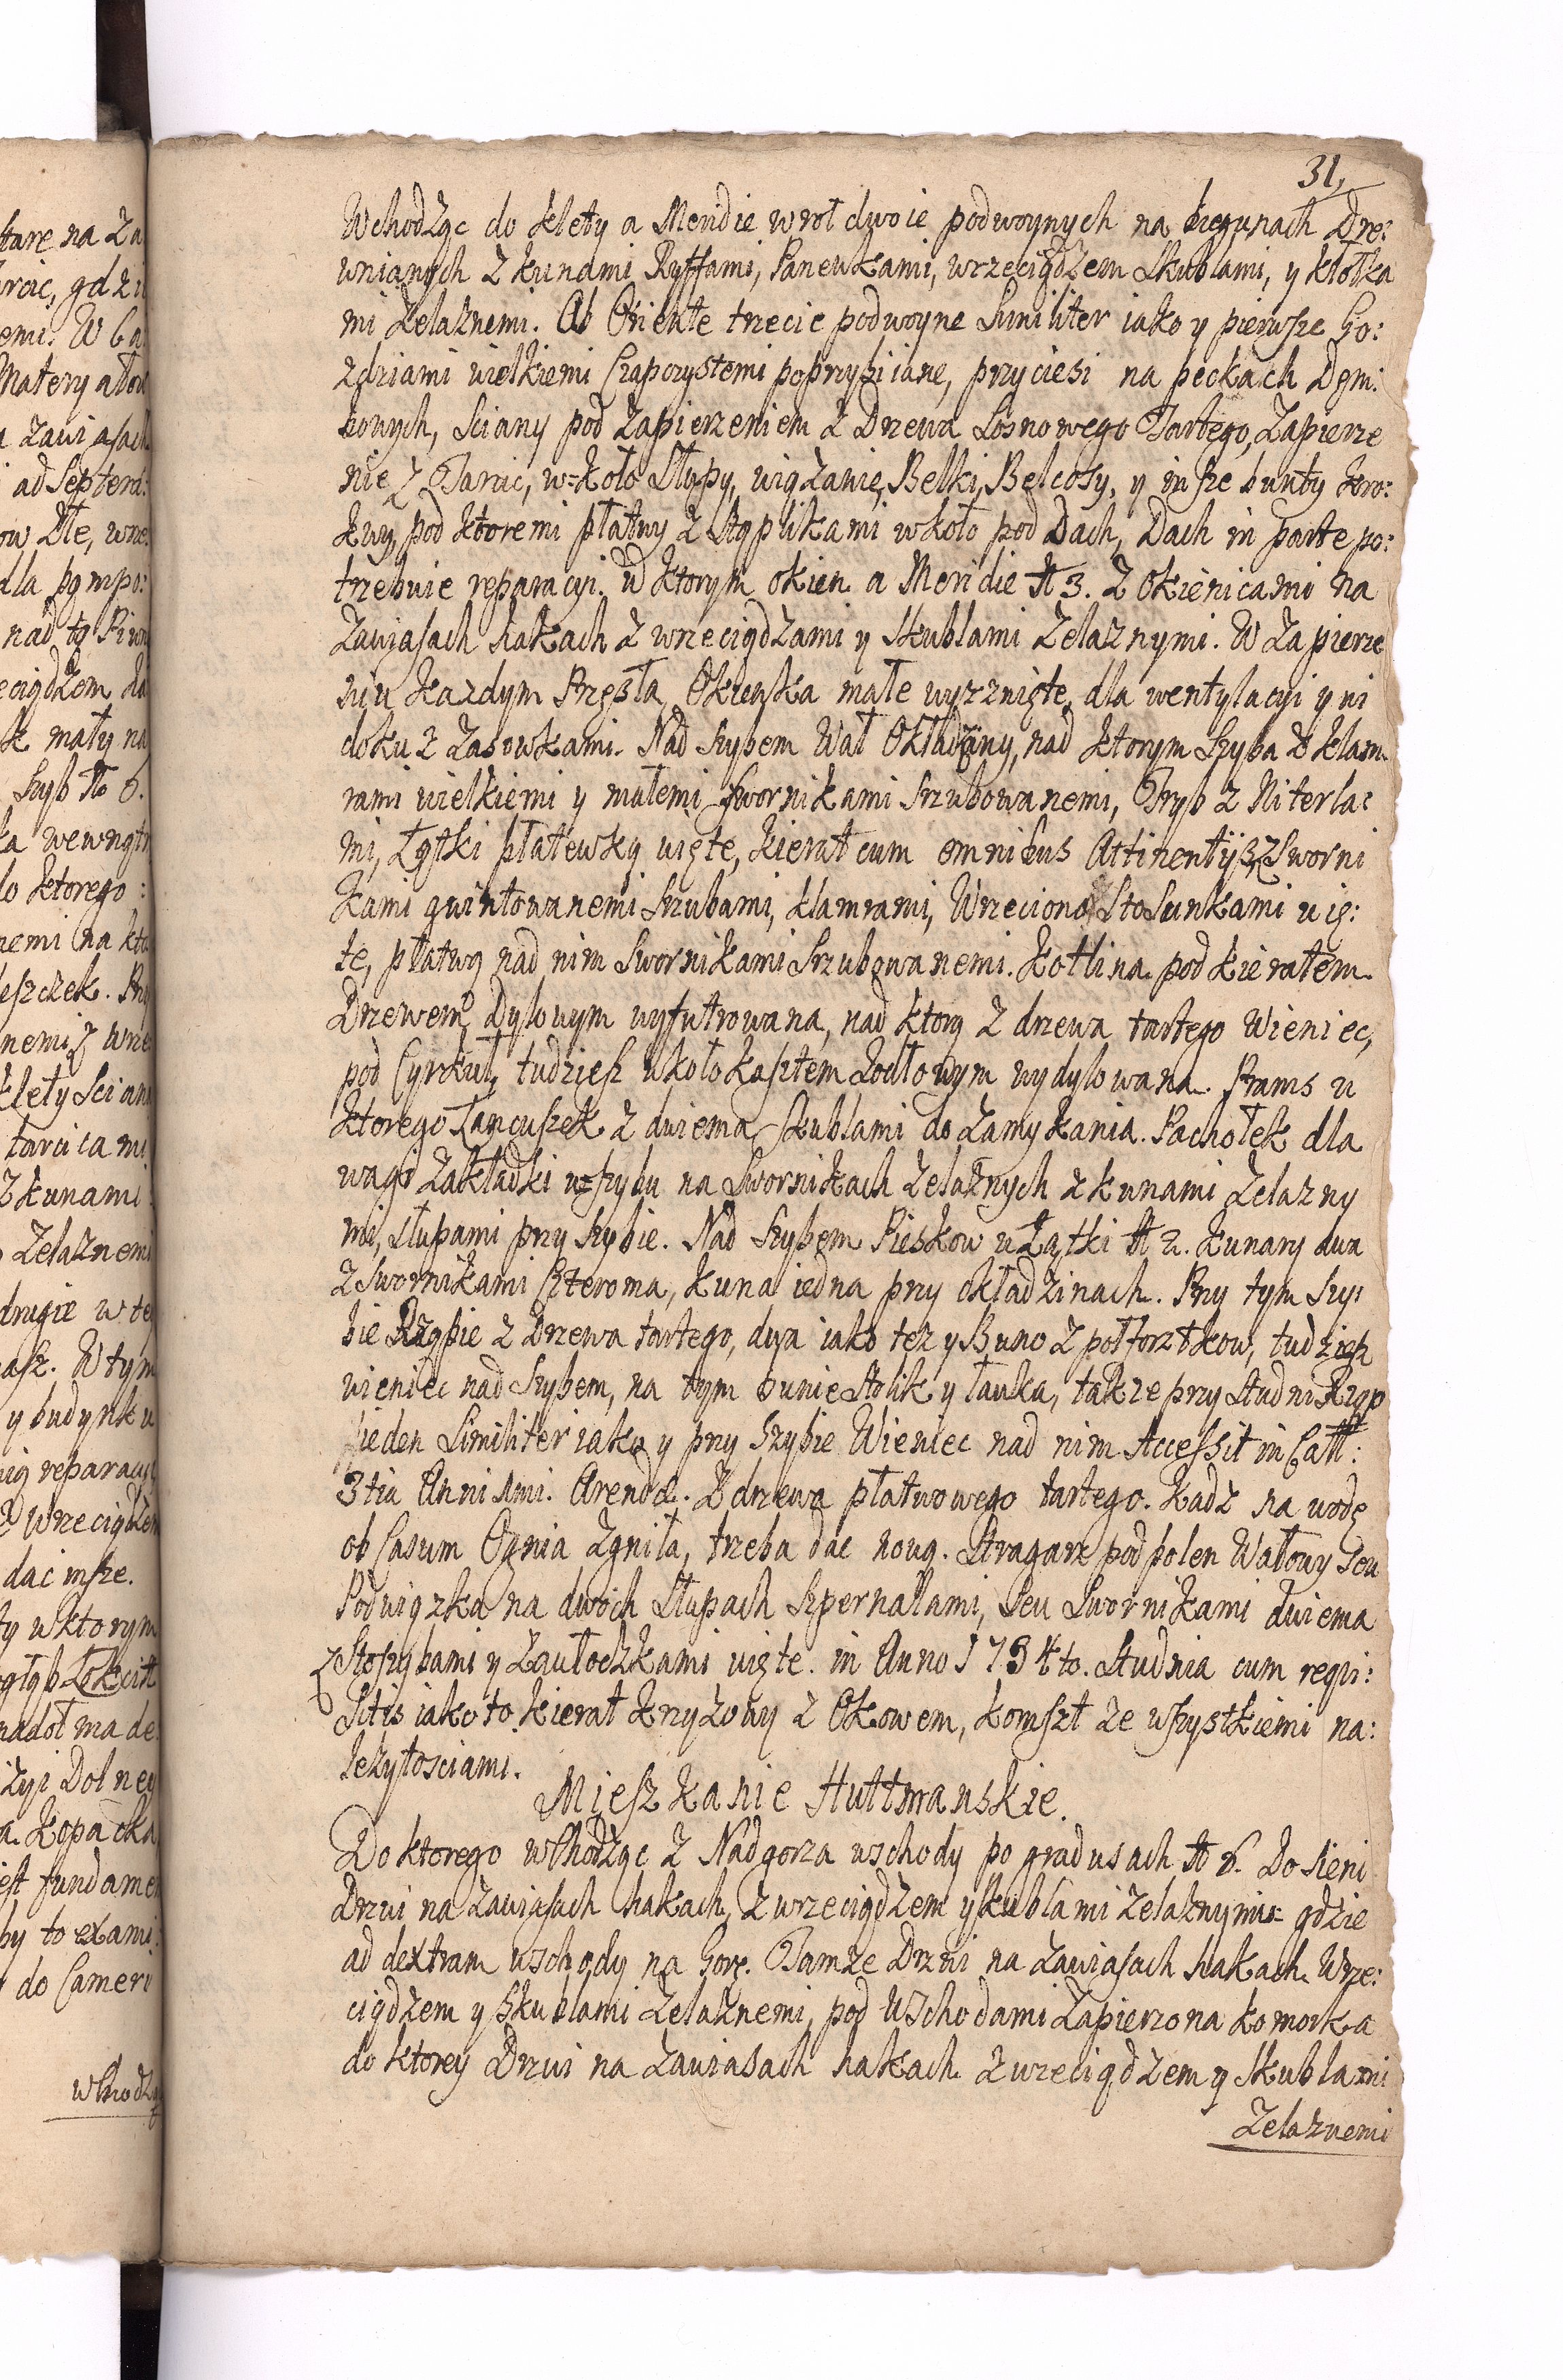 31.
Wchodząc do klety a Meridie wrot dwoie podwoynych na biegunach Dre:
wnianych z kunami Ryffami, Panewkami, wrzeciądzem Skublami, y kłotka
mi żelaznemi. Ab Oriente trzecie podwoyne Similiter iako y pierwsze Go:
zdziami wielkiemi Czapczystemi poprzybiiane, przyciesi na peckach Dęm:
bowych, Sciany pod Zapierzeniem z Drzewa Sosnowego Tartego, Zapierze
nie z Tarcic, w=koło Słupy, wiązanie, Belki, Belcosy, y insze bunty kro:
kwy, pod ktoremi płatwy z Stęplikami wkoło pod Dach, Dach in parte po:
trzebuie reparacyi. W ktorym okien a Meridie N 3. z Okienicami na
Zawiasach hakach z wrzeciądzami y Skublami Zelaznymi. W Zapierze
niu kazdym Przęsła Okienka małe wyrznięte, dla wentylacyi y wi
doku z zasowkami. Nad Szybem Wał Okładziny, nad ktorym Szyba z klam
rami wielkiemi y małemi Swornikami Srzubowanemi, Tryb z Niterla:
mi, Łątki płatewką uięte, kierat cum omnibus Attinentijs, z Sworni
kami gwintowanemi Srzubami, klamrami, Wrzeciono Stosunkami uię:
te, płatwą nad nim Swornikami Srzubowanemi. Kotlina pod kieratem
Drzewem Dylowym wyfutrowana, nad ktorą z drzewa tartego Wieniec,
pod Cyrkuł, tudziesz wkoło kasztem Jodłowym wydylowana. Prams u
ktorego Łancuszek z dwiema Skublami do Zamykania. Pachołek dla
wagi Zakładki w=szybu na Swornikach Zelaznych z kunami Zelazny
mi, słupami przy szybie. Nad Szybem Pieskow u Łątki N 2. Kunary dwa
z Swornikami Czteroma, kuna iedna przy okładzinach. Przy tym Szy:
bie Rząpie z Drzewa tartego, dwa iako tez y Buno z połtorztkow, tudziesz
wieniec nad Szybem, na tym bunie Stolik y ławka, takze przy Studni Rząp
ieden Similiter iako y przy Szybie Wieniec nad nim Accessit in Catt:
3tia Anni 1mi. Arendæ. Z drzewa płatwowego tartego. Kadz na wodę
ob Casum Ognia Zgniła, trzeba dac nową. Stragarz pod polen Wałowy Seu
Podwiązka na dwoch Słupach Szpernalami, Seu Swornikami dwiema
z Stoszybami y Zawłoczkami uięte. in Anno 1734to. Studnia cum requi:
sitis iako to kierat krzyzowy z Okowem, komszt ze wszystkiemi na:
leżytosciami.
Mieszkanie Huttmanskie.
Do ktorego wchodząc z Nadgorza wschody po gradusach N 6. Do sieni
Drzwi na Zawiasach hakach, z wrzeciądzem y skublami Zelaznymi= gdzie
ad dextram wschody na Gorę. Tamze Drzwi na Zawiasach hakach. Wrze:
ciądzem y Skublami Zelaznemi, pod Wschodami Zapierzona komorka
do ktorey Drzwi na Zawiasach hakach z wrzeciądzem y Skublami
Zelaznemi